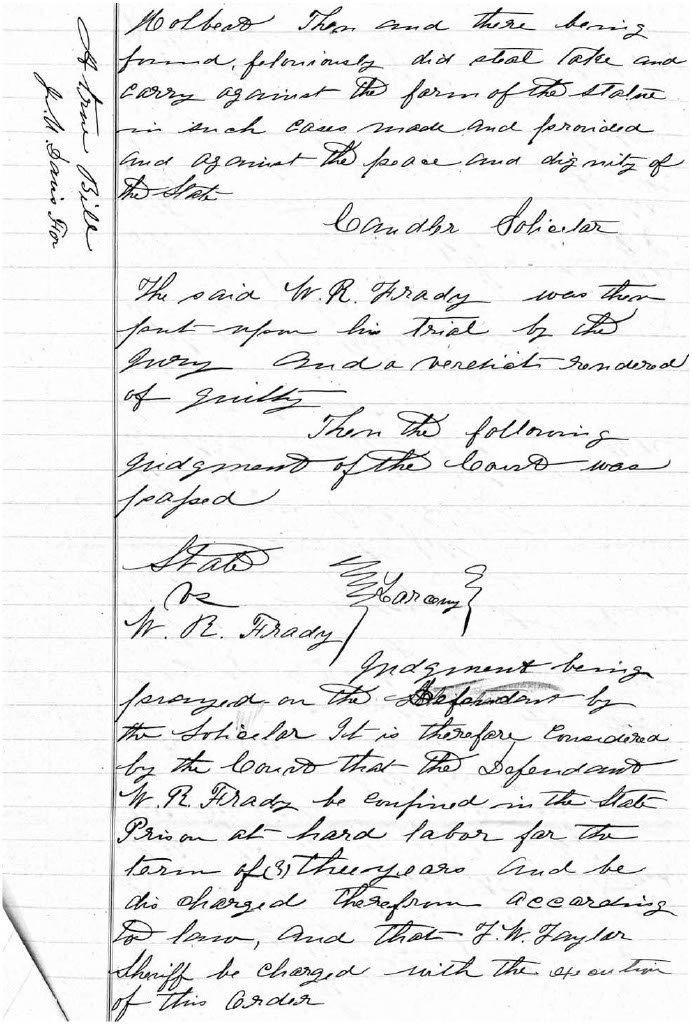 A true Bill
J. W. Davis For
Holbert Then and there being
found, feloniously did steal take and
carry against the form of the statue
in such cases made and provided
and against the peace and dignity of
the State
Candler Solicitor
The said W. R. Frady was then
put upon his trial by the
Jury and a verdict rendered
of guilty
Then the following
Judgment of the Court was
passed
State
vs
Larceny
W. R. Frady
Judgment being
prayed on the Defendant by
the Solicitor It is therefore Considered
by the Court that the Defendant
W. R. Frady be confined in the State
Prison at hard labor for the
term of (3) three years and be
dis charged therefrom according
to law, and that F. W. Taylor
Sheriff be charged with the execution
of this order